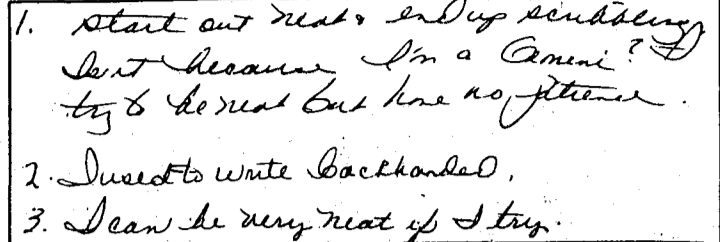 1. Start out neat & end up scribbling
Is it because I'm a Gemini? I
try to be neat but have no patience.
2. I used to write backhanded.
3. I can be very neat if I try.